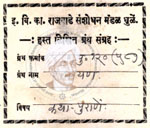 इ. वि. का. राजवाडे संशोधन मंडळ धुळे.
हस्त लिखित ग्रंथ संग्रह
ग्रंथ क्रमांक
ग्रंथ नाम
विषय
कथा-पुराणे